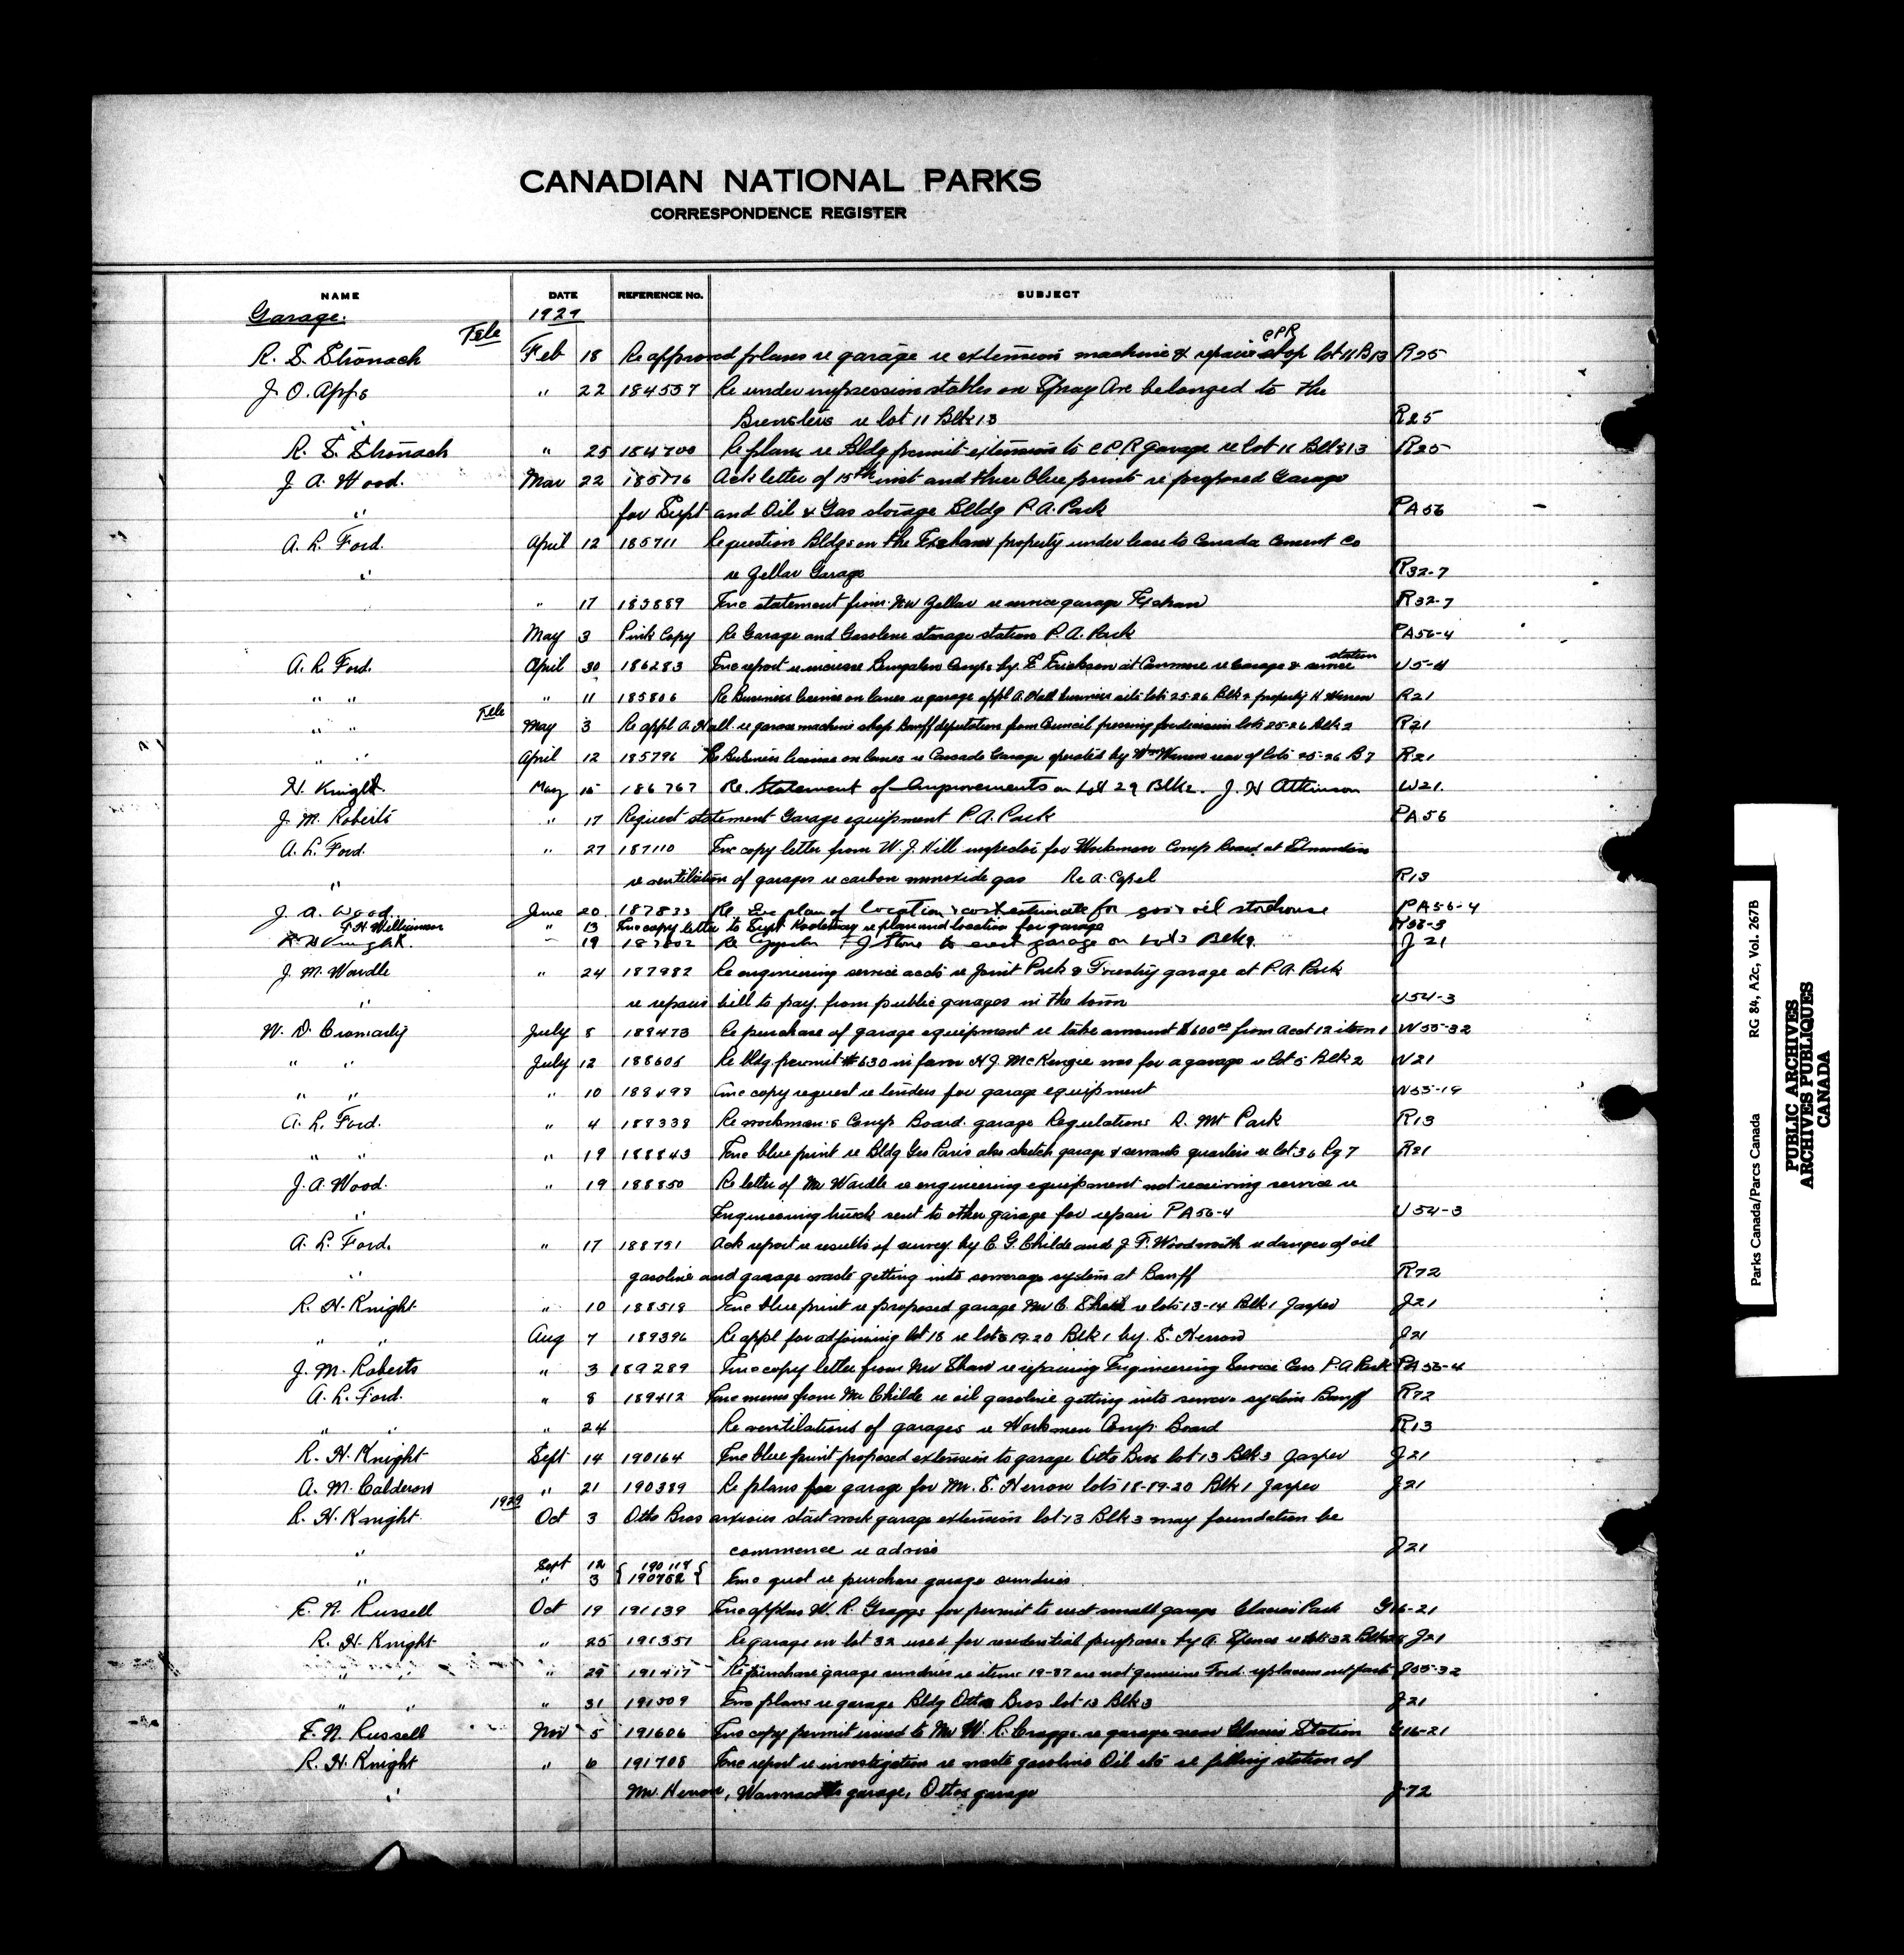 CANADIAN NATIONAL PARKS
CORRESPONDENCE REGISTER
NAME DATE REFERENCE No. SUBJECT
Garage. 1929
Tele
CPR
R. S. Stronach Feb 18 Re approved plans re garage re extension machine & repair shop lot 11 B13 R25
J. O. Apps " 22 184557 Re under impression stables on Spray Ave belonged to the
" Brewsters re lot 11 Blk 13 R25
R. S. Stronach " 25 184700 Re plans re Bldg permit extension to CPR garage re lot 11 Blk 13 R25
J. A. Wood. Mar 22 185176 Ack letter of 15th inst and three blue prints re proposed Garage
" for Supt and Oil & Gas storage Bldg P.A. Park PA56
A. L. Ford. April 12 185711 Re question Bldgs on the Exshaw property under lease to Canada Cement Co
" re Zellar Garage R32-7
" 17 185889 Enc statement from Mr Zellar re service garage Exshaw R32-7
May 3 Pink Copy Re Garage and Gasoline storage station P.A. Park PA56-4
station
A. L. Ford. April 30 186283 Enc report re increase Bungalow Camps by E Erickson at Canmore re Garage & service U5-4
" " " 11 185806 Re Business license on lanes re garage appl A. Hall business site lots 25-26 Blk 2 property H Herron R21
Tele
" " May 3 Re appl A. Hall re garage machine shop Banff deputation from Council pressing for decision lots 25-26 Blk 2 R21
" " April 12 185796 Re Business license on lanes re Cascade Garage operated by Wm Warren rear of lots 25-26 B7 R21
H. Knight. May 15 186767 Re. Statement of Improvements on Lot 29 Blk 2. J. H Atkinson W21.
J. M. Roberts " 17 Request statement Garage equipment P.A. Park PA56
A. L. Ford. " 27 187110 Enc copy letter from W. J. Hill inspector for Workmen Comp Board at Edmonton
" re ventilation of garages re carbon monoxide gas Re A. Capel R13
J. A. Wood. June 20 187833 Re Enc plan of location & cost estimate for gas & oil storehouse PA56-4
F. H. Williamson " 13 Enc copy letter to Supt Kootenay re plan and location for garage
R H Knight. 19 187802 Re to erect garage on Lot 3 Blk 9. J 21
J. M. Wardle " 24 187982 Re engineering service accts re Joint Park & Forestry garage at P.A. Park
" re repairs bill to pay from public garages in the town U54-3
W. D. Cromarty July 8 188473 Re purchase of garage equipment re take amount $600.00 from acct 12 item 1 W55-32
" " July 12 188605 Re bldg permit #630 in favor H J. McKenzie was for a garage re lot 5 Blk 2 W21
" " " 10 188498 Enc copy request re tenders for garage equipment W55-19
A. L. Ford. " 4 188338 Re workman's Comp Board garage Regulations R. Mt Park R13
" " " 19 188843 Enc blue print re Bldg Geo Paris also sketch garage & servants quarters re lot 36 R21
J. A. Wood. " 19 188850 Re letter of Mr Wardle re engineering equipment not receiving service re
" Engineering truck sent to other garage for repair PA56-4 U54-3
A. L. Ford. " 17 188751 Ack report re results of survey by C. G. Childe and J. F. Woodworth re danger of oil
" gasoline and garage waste getting into sewerage system at Banff R72
R. H. Knight " 10 188518 Enc blue print re proposed garage Mr C. re lots 13-14 Blk 1 Jasper J21
" " Aug 7 189396 Re appl for adjoining lot 18 re lots 19-20 Blk 1 by S. Herron J21
J. M. Roberts " 3 189289 Enc copy letter from Mr Shaw re repairing Engineering Service Cars P.A Park PA56-4
A. L. Ford. " 8 189412 Enc memo from Mr Childe re oil gasoline getting into sewer system Banff R72
" " " 24 Re ventilations of garages re Workmen Comp Board R13
R. H. Knight Sept 14 190164 Enc blue print proposed extension to garage Otto Bros lot 13 Blk 3 Jasper J21
A. M. Calderon " 21 190389 Re plans for garage for Mr. S. Herron lots 18-19-20 Blk 1 Jasper J21
1929
R. H. Knight Oct 3 Otto Bros anxious start work garage extension lot 13 Blk 3 may foundation be
" commence re advise J21
Sept 12 { 190118 {
" " 3 { 190762 { Enc quot re purchase garage sundries
E. N. Russell Oct 19 191139 Enc appln W. R. Craggs for permit to erect small garage Glacier Park G16-21
R. H. Knight " 25 191351 Re garage on lot 32 used for residential purposes by A. Spence re lot 32 J21
" " " 29 191417 Re purchase garage sundries re items 19-37 are not genuine Ford replacement parts J55-32
" " " 31 191509 Enc plans re garage Bldg Otto Bros lot 13 Blk 3 J21
E. N. Russell Nov 5 191606 Enc copy permit issued to Mr W. R. Craggs re garage near Glacier Station G16-21
R. H. Knight " 6 191708 Enc report re investigation re waste gasoline Oil etc re filling station of
" Mr. Herron, garage, Ottos garage J-72
Parks Canada/Parcs Canada RG 84, A2c, Vol. 267B
PUBLIC ARCHIVES
ARCHIVES PUBLIQUES
CANADA